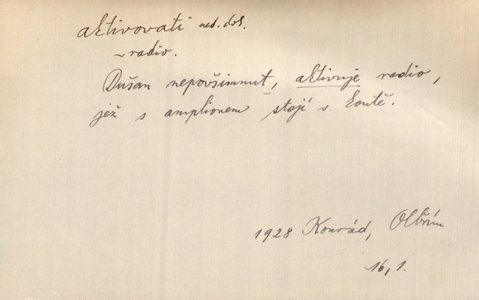 aktivovati ned. dok.
~ radio.
Dušan nepovšimnut, aktivuje radio,
jež s amplionem stojí v koutě.
1928 Konrád, Olbřím
16, 1.